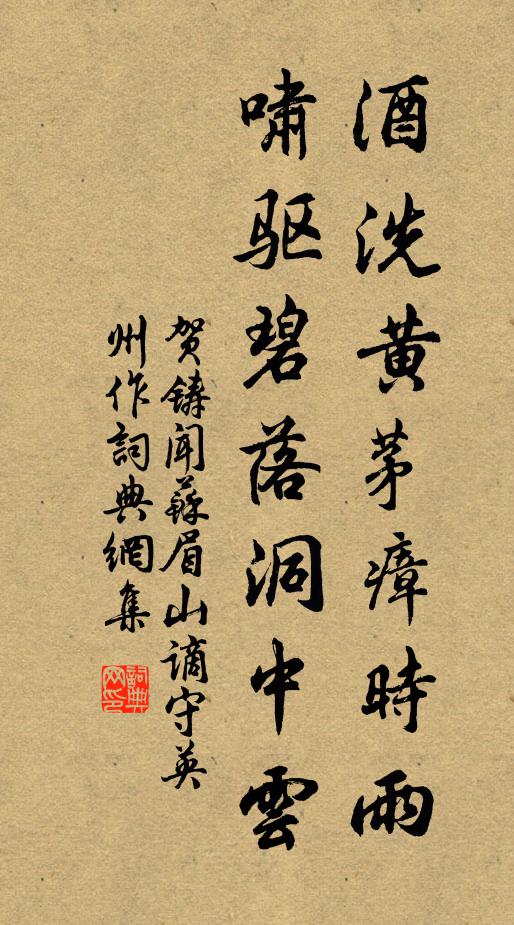 酒洗黄茅瘴時雨
啸驱碧落洞中雲
贺鑄闻蘇眉山謫守英
州作詞典網集
詞典
网印